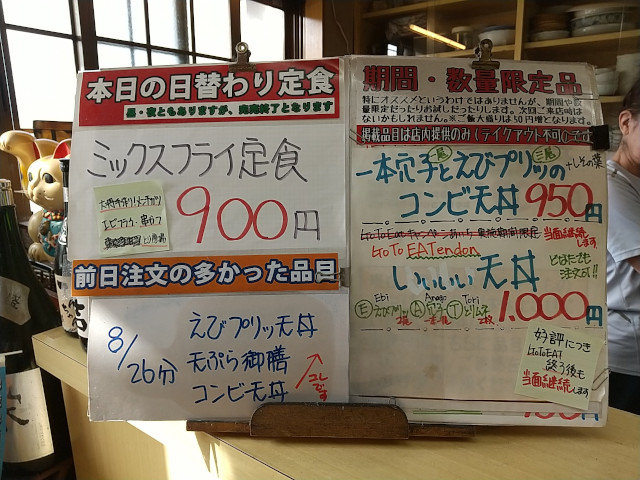 本日の日替わり定食
昼・夜ともありますが、売切終了とあります
ミックスフライ定食
エビフライ・串カツ
900円
前日注文の多かった品目
8/26分
えびプリッツ天丼
天ぷら御膳
コンビ天丼
コレです
期間・数量限定品
特にオススメというわけではありませんが、期間や数
量限定だったりお試しだったりします。次回ご来店時は
ないかもしれません。※ご飯大盛りは50円増となります。
掲載品目は店内提供のみ(テイクアウト不可)です
一本穴子とえびプリッツの
一尾
二尾
+しその葉
コンビ天丼 950円
当面継続します
GoTo EATendon
いいいい天丼
どなたでも
注文可!!
Ebi
Anago
Tori
E えびプリッツ
A 穴子
T とり
1.000円
好評につき
GoToEAT
終了後も
当面継続します